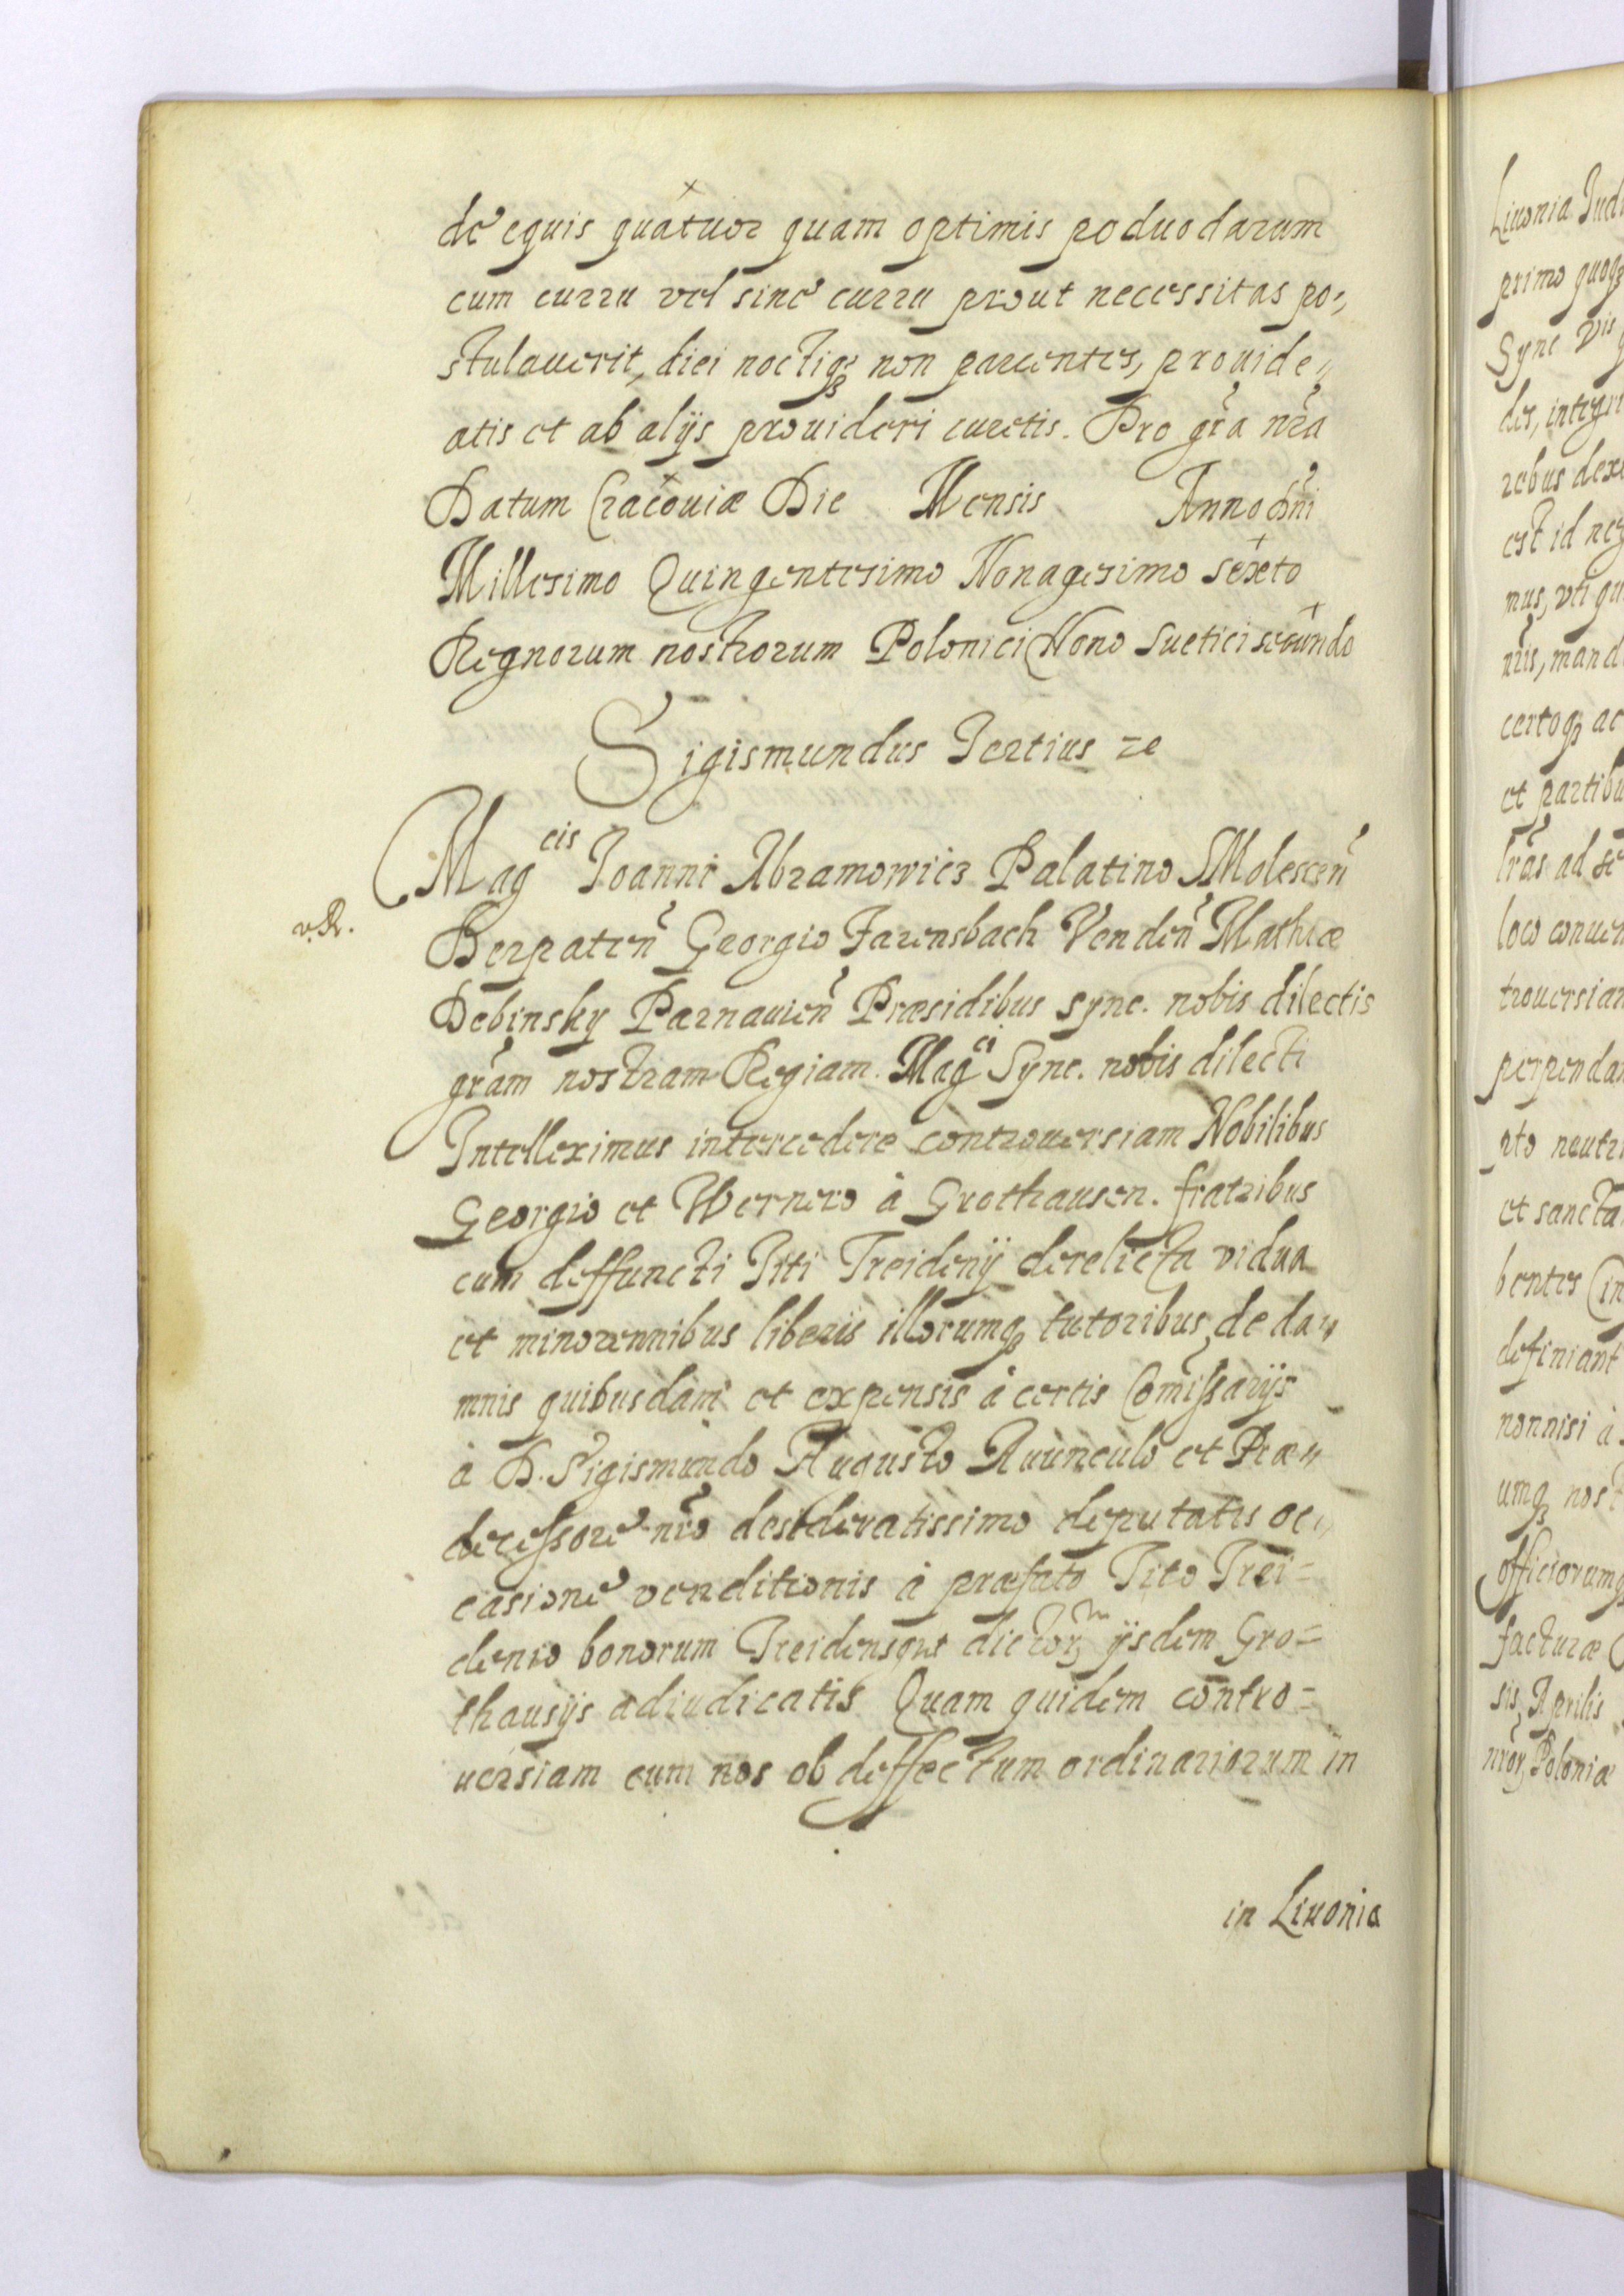 de equis quatuor quam optimis poduodarum
cum curru vel sine curru prout necessitas po„
stulauerit, diei noctiqȝ non parcentes, prouide„
atis et ab alijs prouideri curetis. Pro gr̃a nr̃a
Datum Cracouiæ Die Mensis Anno Dñi
Millesimo Quingentesimo Nonagesimo sexto
Regnorum nostrorum Polonici Nono Suetici secundo
Sigismundus Tertius
Magcis Ioanni Abramowicz Palatino SMolescen̄
v.R.
Derpaten̄ Georgio Farensbach Venden̄ Mathiæ
Debinsky Parnauien̄ Præsidibus sync. nobis dilectis
gr̃am nostram Regiam. Magci Sync. nobis dilecti
Intelleximus intercedere controuersiam Nobilibus
Georgio et Wernero à Grothausen. fratribus
cum deffuncti Titi Treidenij derelicta vidua
et minorennibus liberis illorumqȝ tutoribus, de da„
mnis quibusdam et expensis à certis Com̃issarijs
à D. Sigismundo Augusto Auunculo et Præ„
decessore nr̃o desideratissimo deputatis oc„
casione venditionis à præfato Tito Trei=
denio bonorum ijsdem Gro=
thausijs adiudicatis Quam quidem contro=
uersiam cum nos ob deffectum ordinariorum in
in Liuonia
Liuonia Iud
primo quoqȝ
Sync
des, integri
rebus dex
est id neg
mus, vti qu
nr̃is, mand
certoqȝ ac
et partibu
lr̃as ad
loco conuen
trouersiam
perpenda
neutri
et sancta
bentes
definiant
nonnisi à
umqȝ nost
officiorumqȝ
facturæ
sis Aprilis
Poloniæ